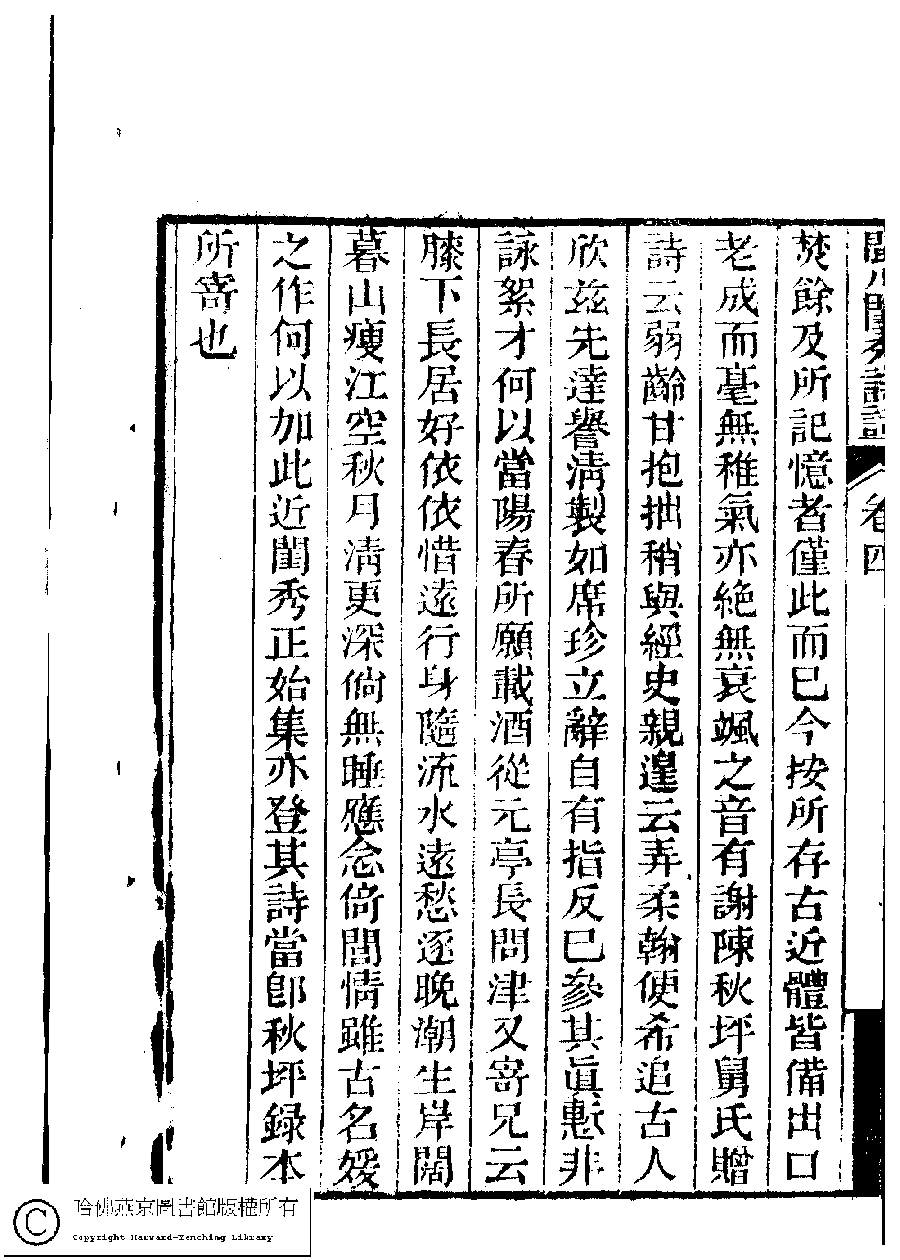 閩川閨秀詩話 卷四
焚餘及所記憶者僅此而已今按所存古近體皆備出口
老成而毫無稚氣亦絶無衰颯之音有謝陳秋坪舅氏贈
詩云弱齡甘抱拙稍與經史親遑云弄柔翰便希追古人
欣兹先達譽淸製如席珍立辭自有指反已參其眞慙非
詠絮才何以當陽春所願載酒從元亭長問津又寄兄云
膝下長居好依依惜遠行身隨流水遠愁逐晚潮生岸闊
暮山瘦江空秋月淸更深倘無睡應念倚閭情雖古名媛
之作何以加此近閨秀正始集亦登其詩當卽秋坪録本
所寄也
哈佛燕京圖書館版權所有
Copyright Harvard-Yenching Library